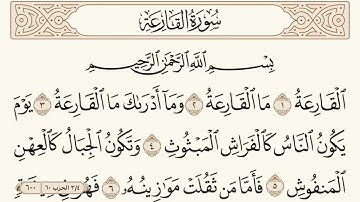 سُورَةُ القَارِعَةِ
بِسْمِ ٱللَّهِ ٱلرَّحْمَٰنِ ٱلرَّحِيمِ
ٱلْقَارِعَةُ ١ مَا ٱلْقَارِعَةُ ٢ وَمَآ أَدْرَىٰكَ مَا ٱلْقَارِعَةُ ٣ يَوْمَ
يَكُونُ ٱلنَّاسُ كَٱلْفَرَاشِ ٱلْمَبْثُوثِ ٤ وَتَكُونُ ٱلْجِبَالُ كَٱلْعِهْنِ
ٱلْمَنفُوشِ ٥ فَأَمَّا مَن ثَقُلَتْ مَوَٰزِينُهُۥ ٦ فَهُوَ
٦٠٠ ٣/٤ الحزب ٦٠